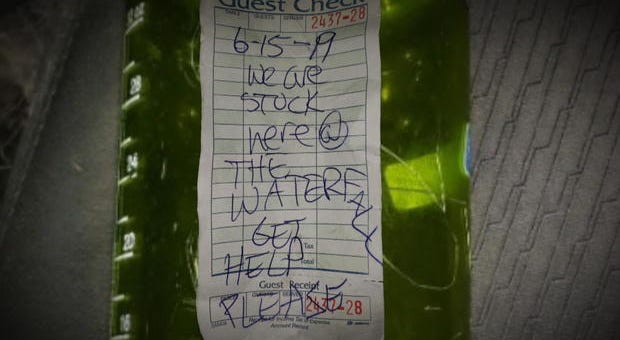 Guest Check
DATE GUESTS SERVER 2437-28
6-15-19
We are
STUCK
here @
THE
WATERFALL
GET
Tax
HELP
Total
Guest Receipt
PLEASE 2437-28